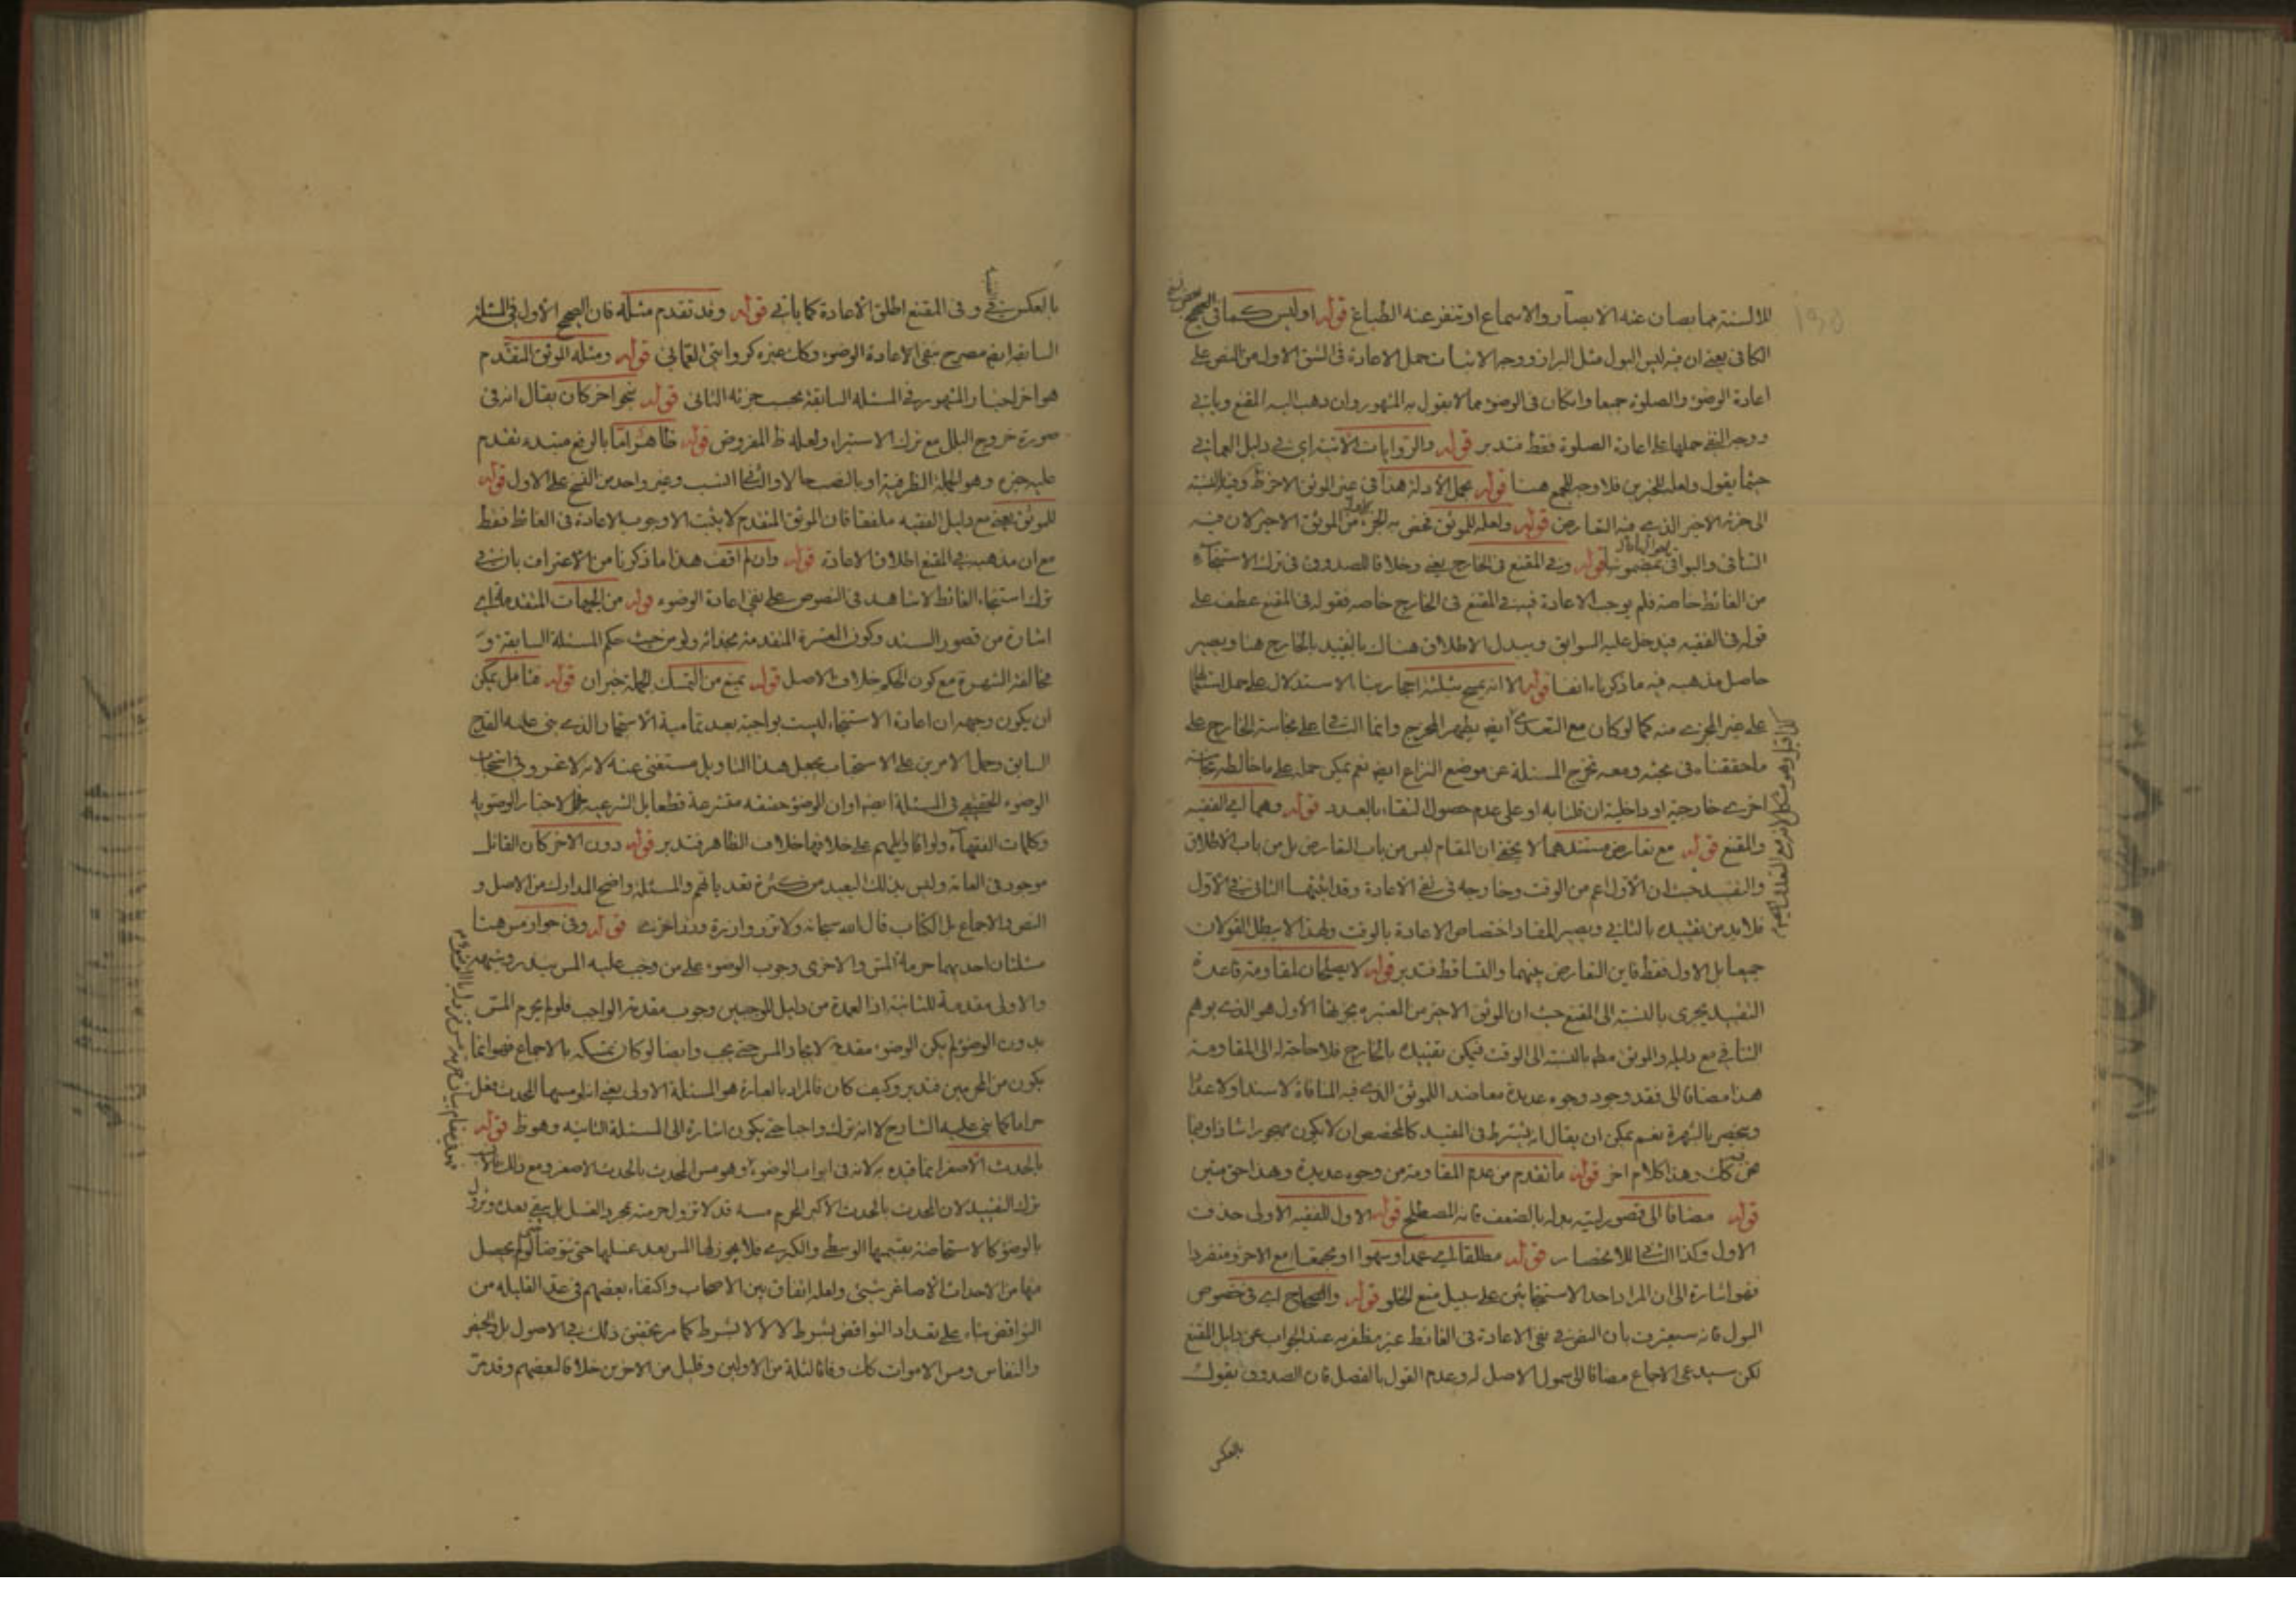 الالسنة مما يصان عنه الابصار والاسماع او تنفر عنه الطباع قوله اوليس كما فى الصحيح
الكافى يعنى ان فيه ليس البول مثل البراز ووجه الاثبات حمل الاعادة فى الشق الاول من النص على
اعادة الوضوء والصلوة جميعا وان كان فى الوضوء مما لا يقول به المشهور وان ذهب اليه المقنع وياتى
ووجه النفى حملها على اعادة الصلوة فقط فتدبر قوله والروايات الاتية اى فى دليل العمانى
حيثما يقول ولعله للخبرين فلا وجه للجمع هنا قوله بحمل الادلة هذا فى غير الموثق الاخر ظ وفيه بالنسبة
الى جزئه الاخير الذى فيه التعارض قوله ولعله للموثق مختص به الجزء من الموثق الاخير لان فيه
الثانى والبواقى بمضمونه قوله وفى المقنع فى الخارج يعنى وخلافا للصدوق فى ترك الاستنجاء
من الغائط خاصة فلم يوجب الاعادة فيه فى المقنع فى الخارج خاصه فقوله فى المقنع عطف على
قوله فى الفقيه فيدخل عليه السوابق ويبدل الاطلاق هناك بالتقييد بالخارج هنا ويصير
حاصل مذهبه فيه ما ذكرناه انفا قوله الا انه يمسح بثلثة احجار بناء الاستدلال على حمل
على غير المجزى منه كما لو كان مع التعدى ايض يطهر المخرج وانما على نجاسة الخارج على
ما حققناه فى محبثه ومعه تخرج المسئلة عن موضع النزاع ايض نعم يمكن حمله على ما خالطه نجاسة
اخرى خارجية او داخلية ان قلنا به او على عدم حصول النقاء بالعدد قوله وهما اى الفقيه
والمقنع قوله مع تعارض مستندهما لا يخفى ان المقام ليس من باب التعارض بل من باب الاطلاق
والتقييد حيث ان الاول اعم من الوقت وخارجه فى نفى الاعادة وقد اثبتها الثانى فى الاول
فلا بد من تقييده بالثانى ويصير المفاد اختصاص الاعادة بالوقت وبهذا لا يبطل القولان
جميعا بل الاول فقط فاين التعارض بينهما والتساقط فتدبر قوله لا يصلحان لمقاومة قاعدة
التقييد يجرى بالنسبة الى المقنع حيث ان الموثق الاخير من العشرة بجزئها الاول هو الذى يوهم
التنافى مع دليله والموثق مط بالنسبة الى الوقت فيمكن تقييده بالخارج فلا حاجة له الى المقاومة
هذا مضافا الى فقد وجود وجوه عديدة معاضد اللموثق الذى فيه المنافاة لا سندا ولا عددا
وينحصر بالشهرة نعم يمكن ان يقال انه يشترط فى المقيد كالمخصص ان لا يكون مهجورا شاذا وما
نحن كك وهذا كلام اخر قوله ما تقدم من عدم المقاومة من وجوه عديدة وهذا حق متين
قوله مضافا الى قصور بدله بالضعف فانه المصطلح قوله الاول للفقيه الاولى حذف
الاول وكذا الثانى للاختصار قوله مطلقا اى عمدا وسهوا او مجتمعا مع الاخر ومنفردا
فهو اشارة الى ان المراد احد الاستنجائين على سبيل منع الخلو قوله والصحاح اى فى خصوص
البول فانه سيعترف بان النص فى نفى الاعادة فى الغائط غير مظفر به عند الجواب عن دليل المقنع
لكن سيدعى الاجماع مضافا الى شمول الاصل له وعدم القول بالفصل فان الصدوق يقول
بالعكس
بالعكس فى وفى المقنع اطلق الاعادة كما ياتى قوله وقد تقدم مثله فان الصحيح الاول فى المسئلة
السابقة ايض مصرح بنفى الاعادة الوضوء وكك غيره كروايتى العمانى قوله ومثله الموثق المتقدم
هو اخر اخبار المشهور فى المسئلة السابقة بحسب جزئه الثانى قوله بنحو اخر كان يقال انه فى
صورة خروج البلل مع ترك الاستبراء ولعله ظ المفروض قوله ظاهر اما بالرفع مبتدء تقدم
عليه خبره وهو الجملة الظرفية او بالنصب حالا والثانى انسب وغير واحد من النسخ على الاول قوله
للموثق بعينه مع دليل الفقيه ملفقا فان الموثق المتقدم لا يثبت الا وجوب الاعادة فى الغائط فقط
مع ان مذهبه فى المقنع اطلاق الاعادة قوله وان لم اقف هذا ما ذكرنا من الاعتراف بان فى
ترك استنجاء الغائط لا شاهد فى النصوص على نفى اعادة الوضوء قوله من الجهات المتقدمة اى
اشارة من قصور السند وكون العشرة المتقدمة بحذائه ولو من حيث حكم المسئلة السابقة و
مخالفة الشهرة مع كون الحكم خلاف الاصل قوله يمنع من التمسك الجملة خبر ان قوله فتامل يمكن
ان يكون وجهه ان اعادة الاستنجاء ليست بواجبة بعد تمامية الاستجمار الذى بنى عليه القدح
السابق وحمل الامرين على الاستحباب يجعل هذا التاويل مستغنى عنه لانه لا غرو فى استحباب
الوضوء فى المسئلة ايضا وان الوضوء حقيقة متشرعة قطعا بل الشرعية فى الاخبار الرضوية
وكلمات الفقهاء ولو اقاويلهم على خلافها خلاف الظاهر فتدبر قوله دون الاخر كان القائل
موجود فى العامة وليس بذلك البعيد من كثرة تعدياتهم والمسئلة واضح المدارك من الاصل و
النص والاجماع بل الكتاب قال الله سبحانه ولا تزر وازرة وزر اخرى قوله وفى جواز مس هنا
مسئلتان احديهما حرمة المس والاخرى وجوب الوضوء على من وجب عليه المس بنذر وشبهه
والاولى مقدمة للثانية اذ العمدة من دليل الموجبين وجوب مقدمة الواجب فلو لم يحرم المس
بدون الوضوء لم يكن الوضوء مقدمة لايجاد المس حتى يجب وايضا لو كان تمسكه بالاجماع فهو انما
يكون من المحرمين فتدبر وكيف كان فالمراد بالعبارة هو المسئلة الاولى يعنى انه لو مسها المحدث فعل
حراما كما بنى عليه الشارح لا انه ترك واجبا حتى يكون اشارة الى المسئلة الثانية وهو ظ قوله
بالحدث الاصغر انما قيده به لانه فى ابواب الوضوء وهو مس المحدث بالحدث الاصغر ومع ذلك
ترك التقييد لان المحدث بالحدث الاكبر المحرم مسه قد لا تزول حرمته بمجرد الغسل بل يبقى بعده وتزول
بالوضوء كالاستحاضة بقسميها الوسطى والكبرى فلا يجوز لها المس بعد غسلها حتى تتوضأ لو لم يحصل
منها من الاحداث الاصاغر شيئ ولعله اتفاق بين الاصحاب واكتفاء بعضهم فى عد القليلة من
النواقض بناء على تعداد النواقض بشرط لا لا لا بشرط كما مر تحقيق ذلك فى الاصول بل الحيض
والنفاس ومس الاموات كك وفاقا لثلة من الاولين وقليل من الاخرين خلافا لبعضهم وقد مر